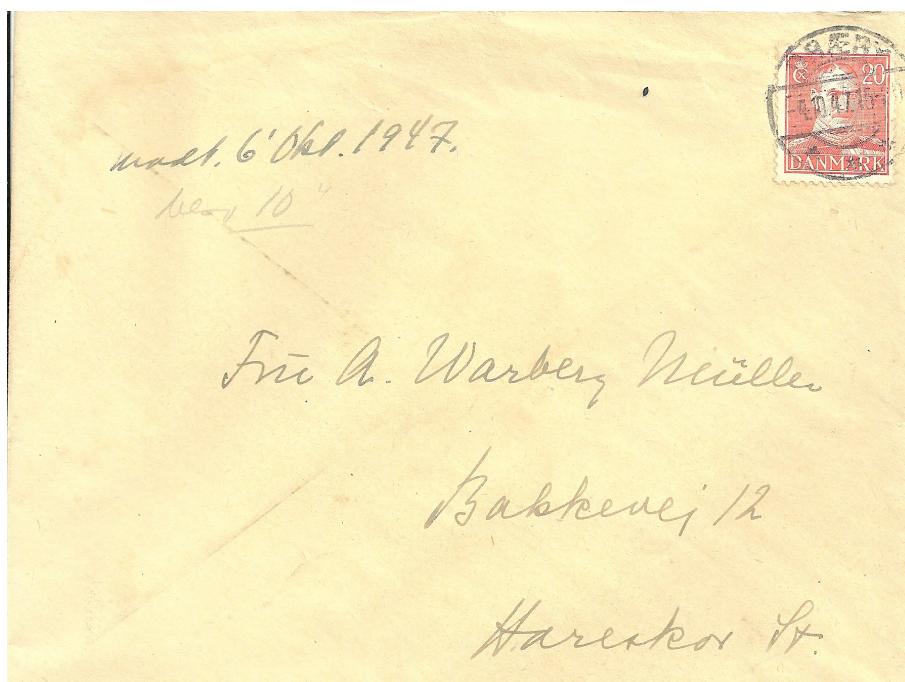 BÆR
20
4.10.47.15
DANMARK
modt. 6' Okt. 1947.
10"
Fru A. Warberg Müller
Bakkevej 12
Hareskov St.